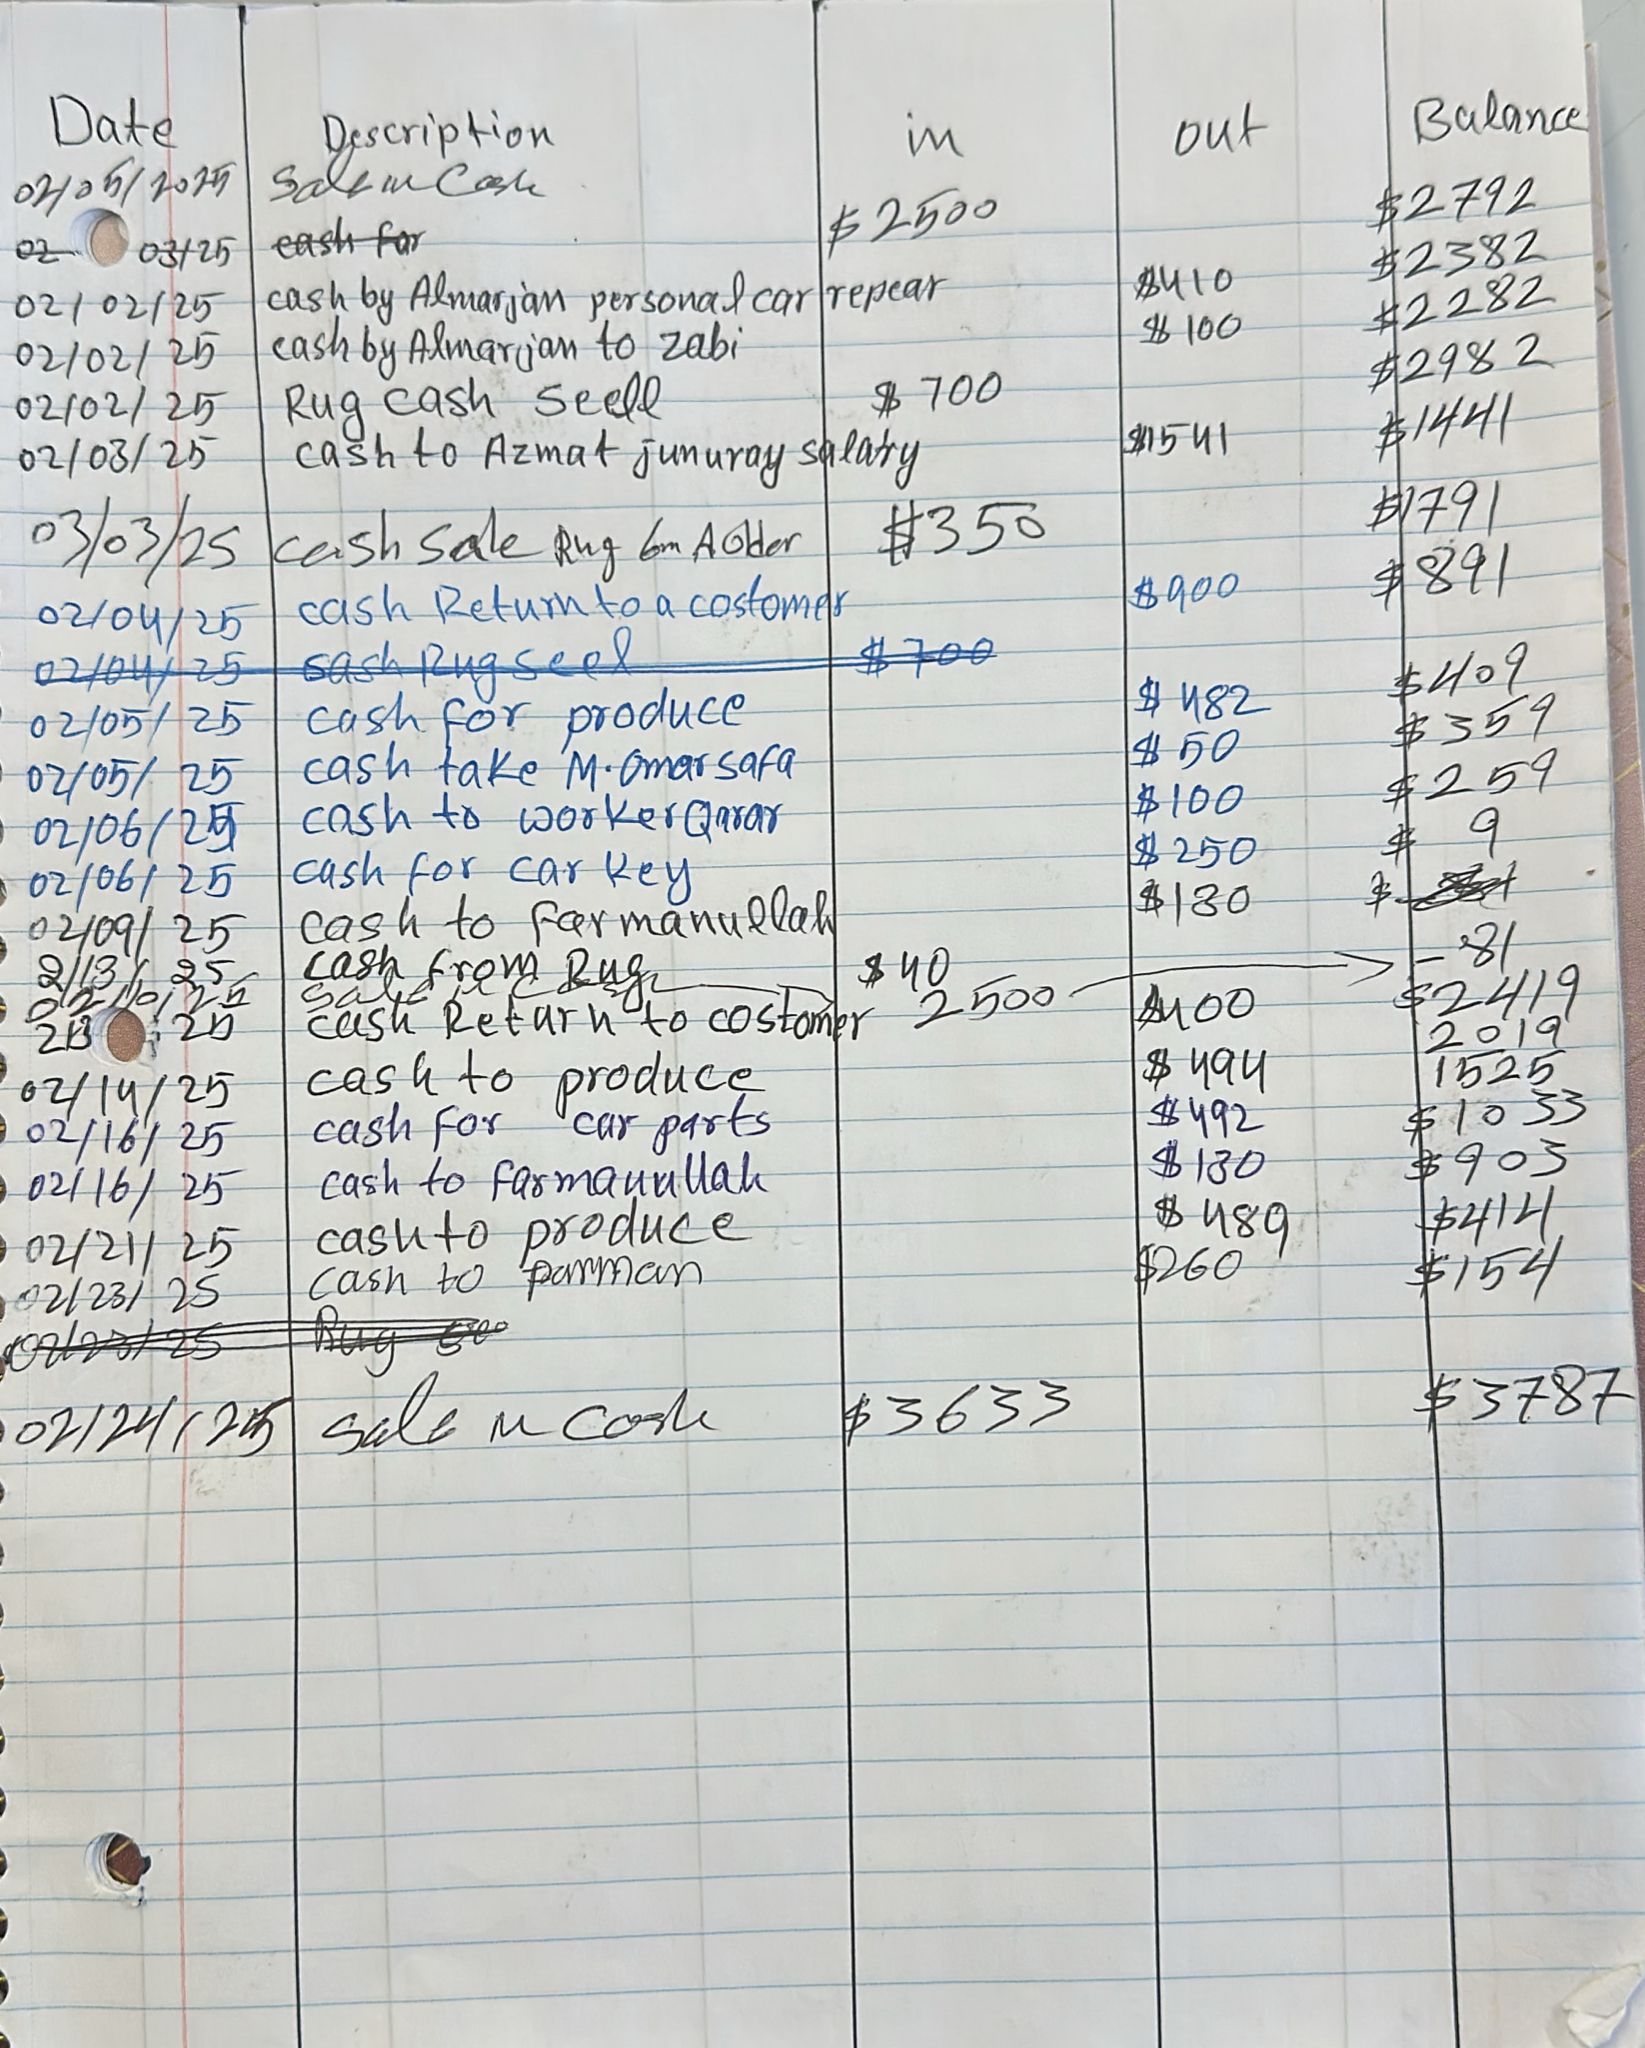 Date Description in out Balance
02/05/2025 Sale in Cash $2500 $2792
02 03/25 cash for $2382
02/02/25 cash by Almarjan personal car repear $410 $2282
02/02/25 cash by Almarjan to zabi $100 $2982
02/02/25 Rug cash seell $700
02/03/25 cash to Azmat junuray salary $1541 $1441
03/03/25 cash sale Rug $350 $1791
02/04/25 cash Return to a costomer $900 $891
02/04/25 cash Rug seel $700
02/05/25 cash for produce $482 $409
02/05/25 cash take M.Omar safa $50 $359
02/06/25 cash to worker Qarar $100 $259
02/06/25 cash for car key $250 $9
02/09/25 cash to farmanullah $130 $
2/13/25 cash from Rug $40 -81
02/10/25 sale in cash 2500 $2419
213 25 cash Return to costomer $400 2019
02/14/25 cash to produce $494 1525
02/16/25 cash for car parts $492 $1033
02/16/25 cash to farmanullah $130 $903
02/21/25 cash to produce $489 $414
02/23/25 cash to parman $260 $154
02/23/25 Rug
02/24/25 Sale in Cash $3633 $3787